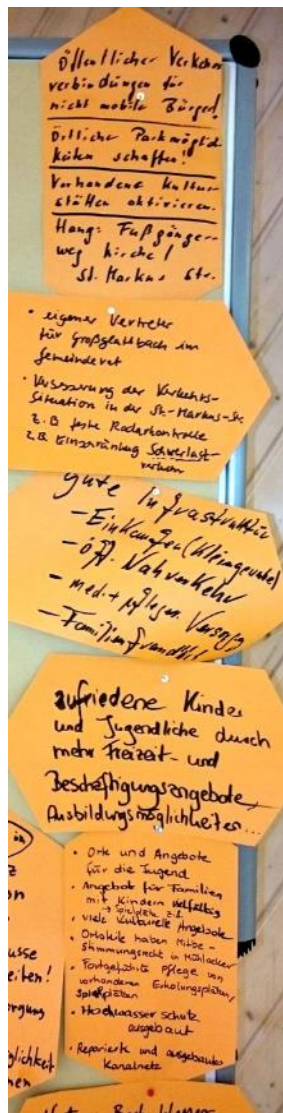 Öffentlicher Verkehr
verbindungen für
nicht mobile Bürger!
Örtliche Parkmöglich
keiten schaffen!
Vorhandene Kultur
stätten aktivieren.
Hang: Fußgänger-
weg Kirche/
St. Markus Str.
• eigener Vertreter
für Großglattbach im
Gemeinderat
• Verbesserung der Verkehrs-
Situation in der St.-Markus-Str.
z.B feste Radarkontrolle
z.B Einschränkung Schwerlast-
verkehr
gute Infrastruktur
- Einkaufen (Kleingewerbe)
- öff. Nahverkehr
- med. + pflegen. Versorg
- Familienfreundlich
zufriedene Kinder
und Jugendliche durch
mehr Freizeit- und
Beschäftigungsangebote,
Ausbildungsmöglichkeiten...
• Orte und Angebote
für die Jugend
• Angebote für Familien
mit Kindern vielfältig
→ Spielplätze z.B.
• viele kulturelle Angebote
• Ortsteile haben Mitbe-
stimmungsrecht in Mühlacker
• Fortgeführte Pflege von
vorhandenen Erholungsplätzen,
Spielplätzen
• Hochwasserschutz
ausgebaut
• Reparierte und ausgebautes
Kanalnetz
in
z
on
usse
eiten!
orgung
glichkeit
nen